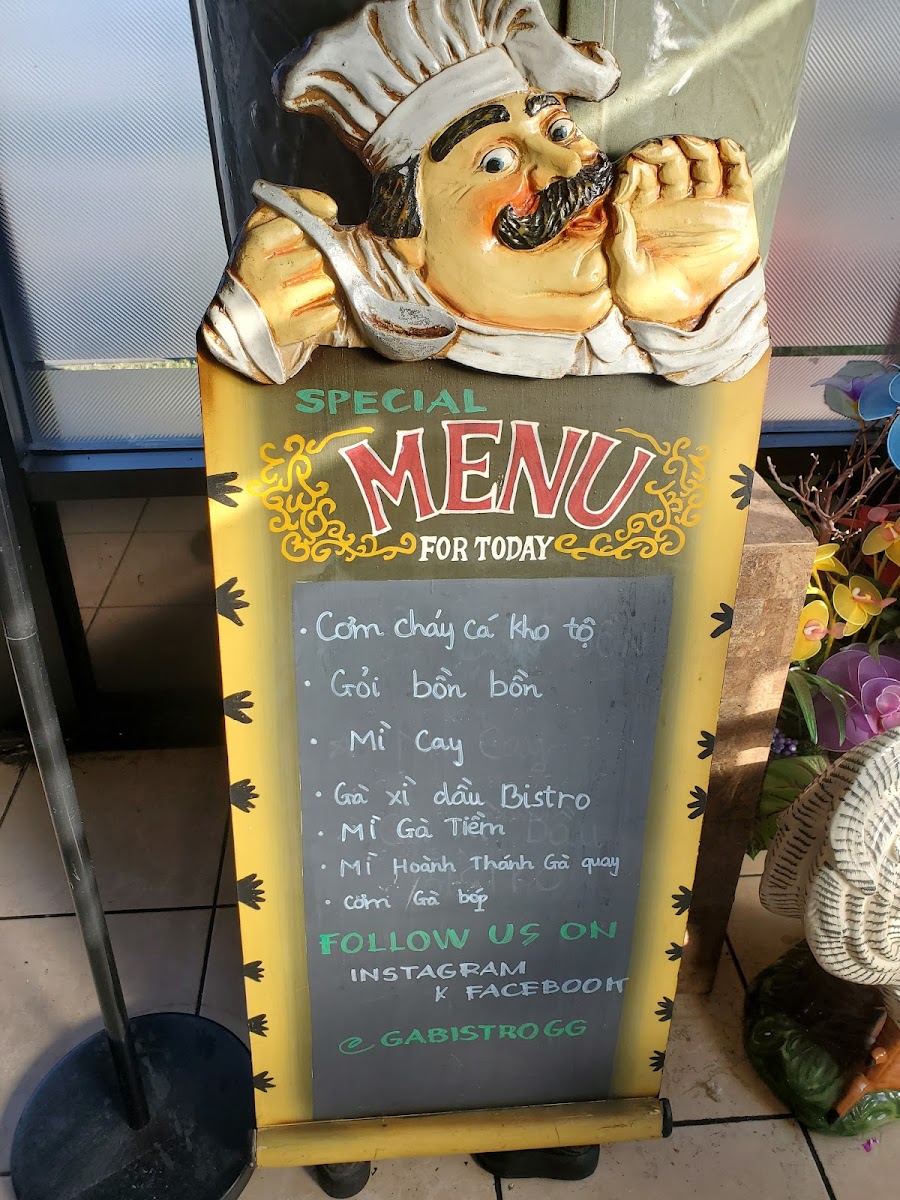 SPECIAL
MENU
FOR TODAY
· Cơm cháy cá kho tộ
· Gỏi bồn bồn
· Mì Cay
· Gà xì dầu Bistro
· Mì Gà Tiềm
· Mì Hoành Thánh Gà quay
· Cơm Gà bóp
FOLLOW US ON
INSTAGRAM
& FACEBOOK
@GABISTROGG